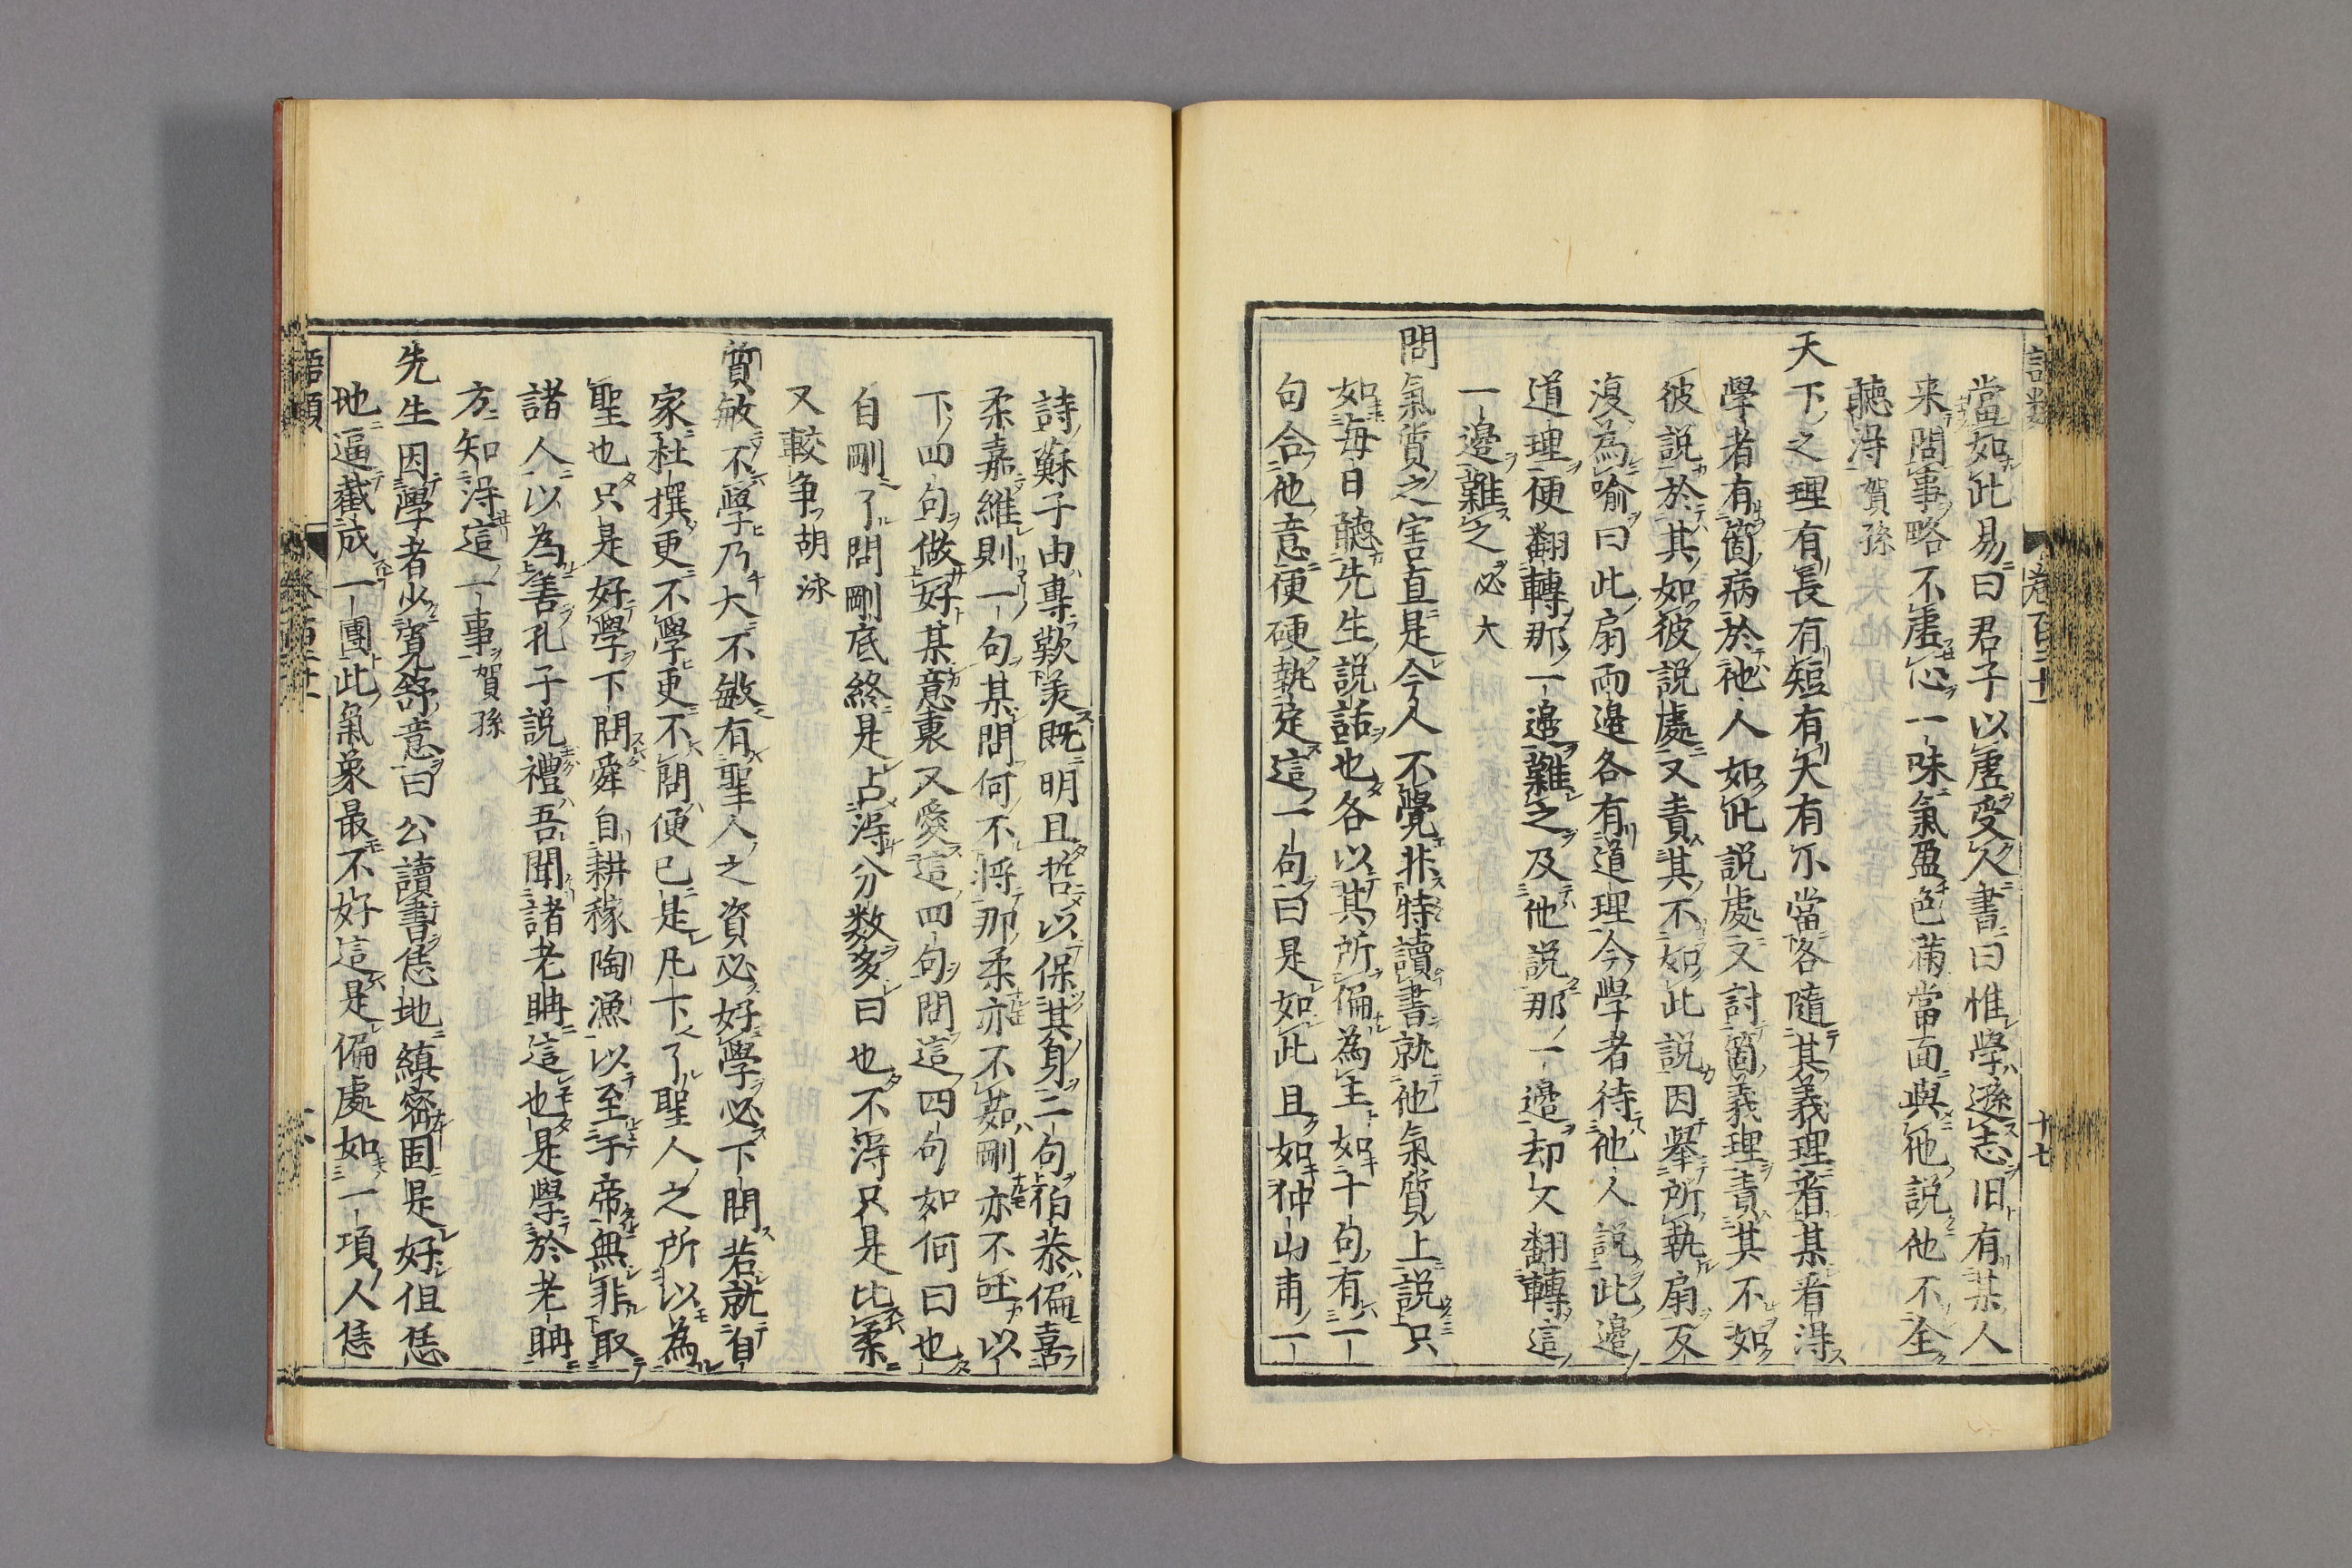 當如此易曰君子以虛受人書曰惟學遜志旧有某人
来問事略不虛心一味氣盈色滿當面與他説他不全
聽淂賀孫
天下之理有長有短有大有小當各隨其義理看某看淂
學者有箇病於他人如此説處又討箇義理責其不如
彼説於其如彼説處又責其不如此説因舉所執扇反
復為喻曰此扇兩邊各有道理今學者待他人説此邊
道理便翻轉那一邊難之及他説那一邊却又翻轉這
一邊難之必大
問氣質之害直是今人不覺非特讀書就他氣質上説只
如每日聽先生説話也各以其所偏為主如十句有一
句合他意便硬執定這一句曰是如此且如仲山甫一
詩蘇子由專歎美既明且哲以保其身二句伯恭偏喜
柔嘉維則一句某問何不将那柔亦不茹剛亦不吐以
下四句做好某意裏又愛這四句問這四句如何曰也
自剛了問剛底終是占淂分数多曰也不淂只是比柔
又較争胡泳
質敏不學乃大不敏有聖人之資必好學必下問若就自
家杜撰更不學更不問便已是凡下了聖人之所以為
聖也只是好學下問舜自耕稼陶漁以至于帝無非取
諸人以為善孔子説禮吾聞諸老聃這也是學於老聃
方知淂這一事賀孫
先生因學者少寛舒意曰公讀書恁地縝密固是好但恁
地逼截成一團此氣象最不好這是偏處如一項人恁
語類
卷百二十一
十七